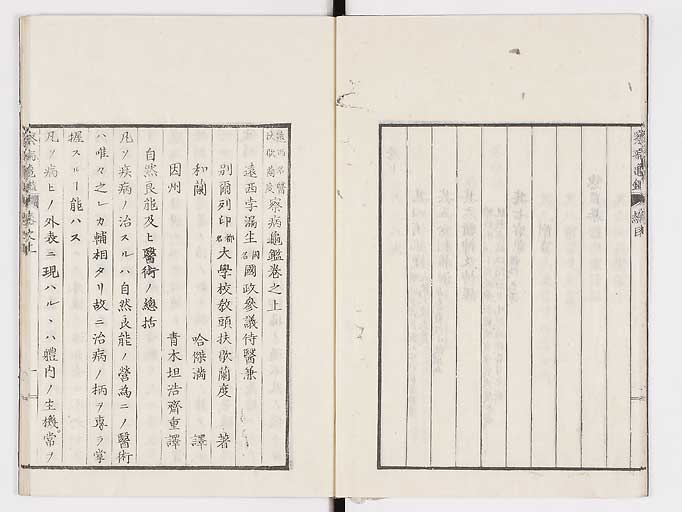 察病亀鑑 總目
遠西名醫
扶歇蘭度
察病龜鑑卷之上
遠西孛漏生國名國政參議侍醫兼
別爾列印都名大學校教頭扶歇蘭度 著
和蘭 哈傑満 譯
因州 青木坦浩齋重譯
自然良能及ヒ醫術ノ總括
凡ソ疾病ノ治スルハ自然良能ノ營為ニノ醫術
ハ唯々之レカ輔相タリ故ニ治病ノ柄ヲ専ラ掌
握スルヿ能ハス
凡ソ病ヒノ外表ニ現ハルヽハ體内ノ生機常ヲ
察病龜鑑 卷之上 一